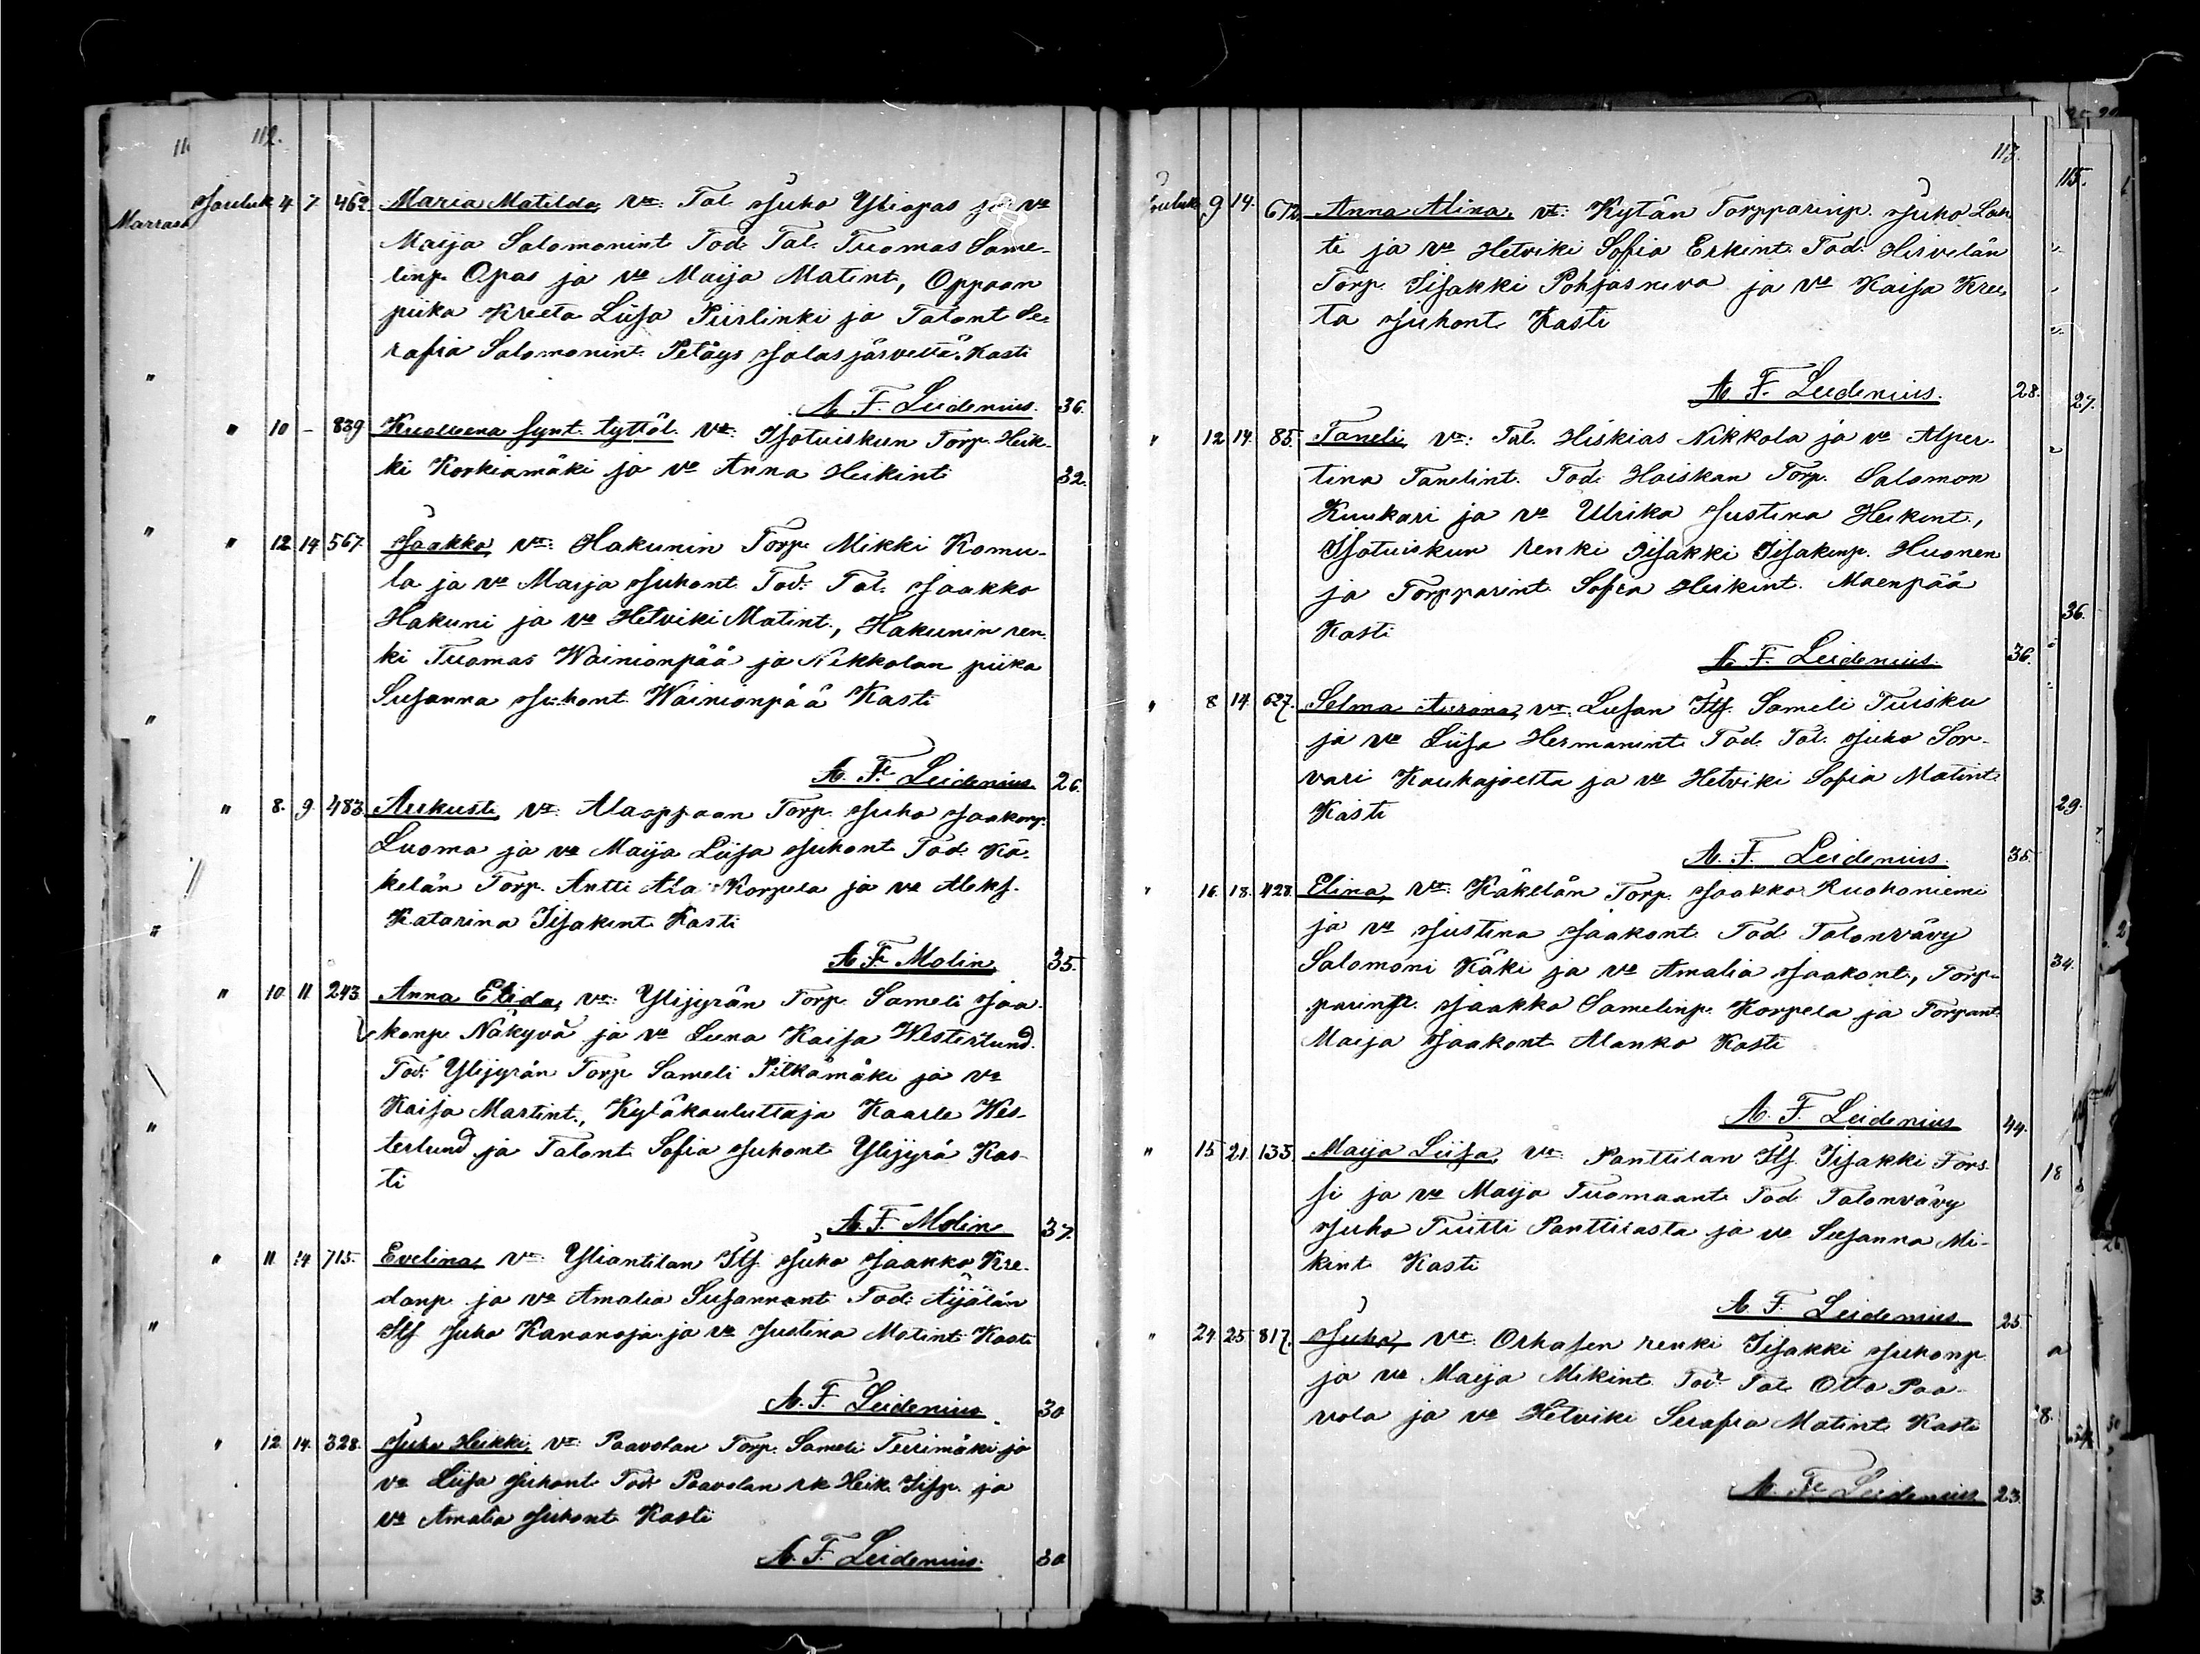 112.
Jouluk 4 7 462. Maria Matilda, va: Tal. Juho Yliopas ja va
Maija Salomonint. Tod. Tal. Tuomas Same-
linp. Opas ja va Maija Matint., Oppaan
piika Kreeta Liisa Piirlinki ja Talont. Se-
rafia Salomonint. Petäys Jalasjärveltä. Kasti
A. F. Leidenius. 36.
" 10 - 839 Kuolleena synt. tyttöl. va: Isotuiskun Torp. Heik-
ki Korkiamäki ja va Anna Heikint. 32.
" 12 14 567. Jaakko, va: Hakunin Torp. Mikki Komu-
la ja va Maija Juhont. Tod: Tal. Jaakko
Hakuni ja va Hetviki Matint., Hakunin ren-
ki Tuomas Wainionpää ja Nikkolan piika
Susanna Juhont. Wainionpää Kasti
A. F. Leidenius. 26.
" 8. 9. 483. Aukusti, va: Alaoppaan Torp. Juho Jaakonp.
Luoma ja va Maija Liisa Juhont. Tod. Kä-
kelän Torp. Antti Ala-Korpela ja va Aleks.
Katarina Iisakint. Kasti
A. F. Molin 35.
" 10 11. 243. Anna Elida, va: Ylijyrän Torp. Sameli Jaa-
konp. Näkyvä ja va Leena Kaisa Westerlund.
Tod: Ylijyrän Torp. Sameli Pitkämäki ja va
Kaisa Martint., Kyläkouluttaja Kaarle Wes-
terlund ja Talont. Sofia Juhont. Ylijyrä Kas-
ti
A. F. Molin 37.
" 11 14 715. Evelina, va: Yliantilan Its. Juho Jaakko Kre-
danp. ja va Amalia Susannant. Tod: Äijälän
Its. Juho Kananoja ja va Justina Matint. Kasti
A. F. Leidenius. 30
" 12. 14. 328. Juho Heikki, va: Paavolan Torp. Sameli Teerimäki ja
va Liisa Juhont. Tod: Paavolan rk. Heik. Iisp. ja
va Amalia Juhont. Kasti
A. F. Leidenius. 30
113.
9 14. 672. Anna Alina, va: Kytän Torpparinp. Juho Lah-
ti ja va Hetviki Sofia Erkint. Tod: Hirvelän
Torp. Iisakki Pohjasneva ja va Kaisa Kree-
ta Juhont. Kasti
A. F. Leidenius. 28.
" 12 14. 85. Taneli, va: Tal. Hiskias Nikkola ja va Alper-
tina Tanelint. Tod: Hoiskan Torp. Salomon
Kuukari ja va Ulrika Justina Heikint.,
Isotuiskun renki Iisakki Iisakinp. Huonen
ja Torpparint. Sofia Heikint. Mäenpää
Kasti
A. F. Leidenius. 36.
" 8 14. 627. Selma Aurora, va: Luisan Its. Sameli Tuisku
ja va Liisa Hermanint. Tod. Tal. Juho Sor-
vari Kauhajoelta ja va Hetviki Sofia Matint.
Kasti
A. F. Leidenius. 35.
" 16. 18. 428. Elina, va: Käkelän Torp. Jaakko Ruohoniemi
ja va Justina Jaakont. Tod. Talonvävy
Salomoni Käki ja va Amalia Jaakont., Torp-
parinp. Jaakko Samelinp. Korpela ja Torpant.
Maija Jaakont. Alanko Kasti
A. F. Leidenius 44.
" 15 21. 133. Maija Liisa, va: Panttilan Its. Iisakki Fors-
si ja va Maija Tuomaant. Tod. Talonvävy
Juho Tuitti Panttilasta ja va Susanna Mi-
kint. Kasti
A. F. Leidenius 25.
" 24. 25 817. Juho, va: Orhasen renki Iisakki Juhonp.
ja va Maija Mikint. Tod: Tal. Otto Paa-
vola ja va Hetviki Serafia Matint. Kasti
A. F. Leidenius 23.